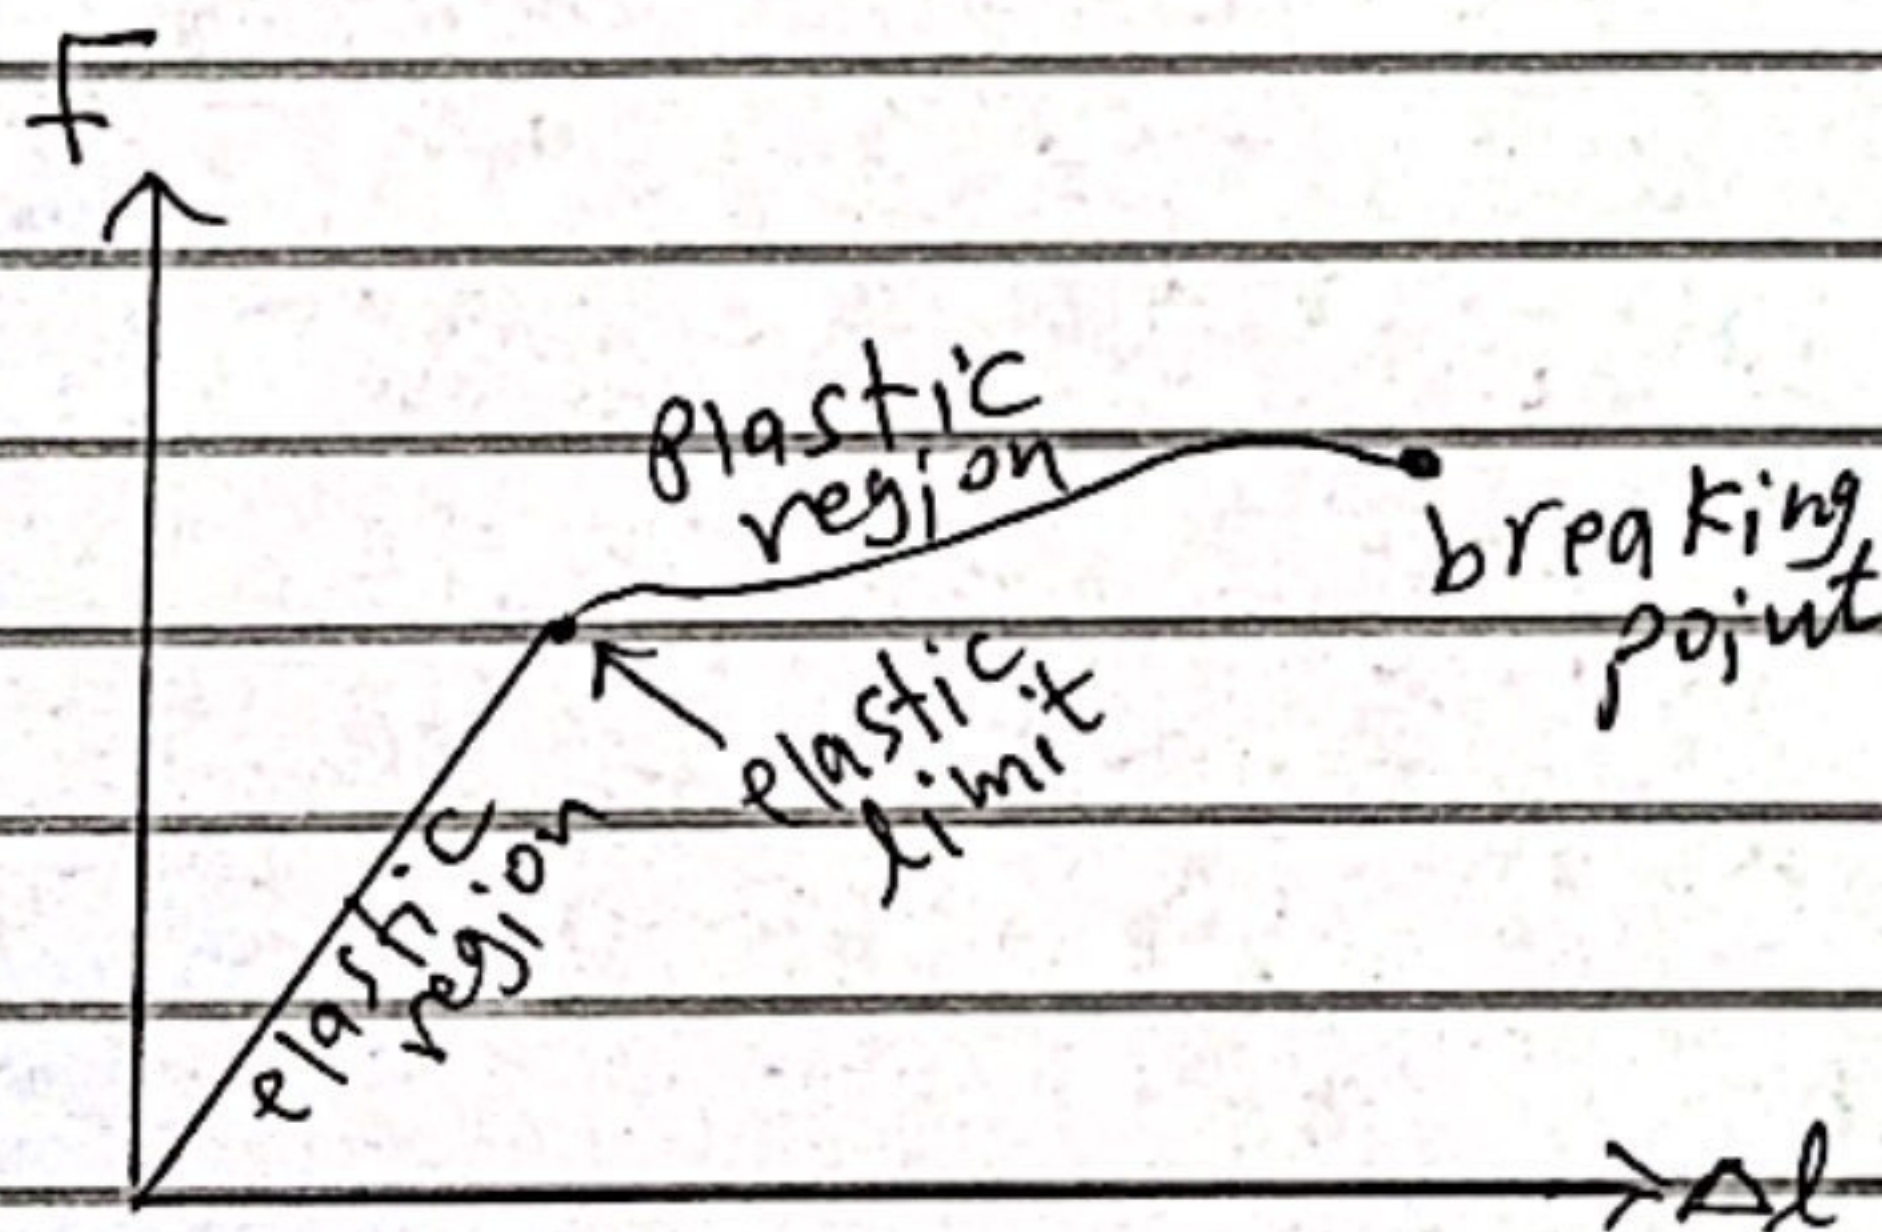 F
plastic
region
breaking
point
elastic
limit
elastic
region
Δl